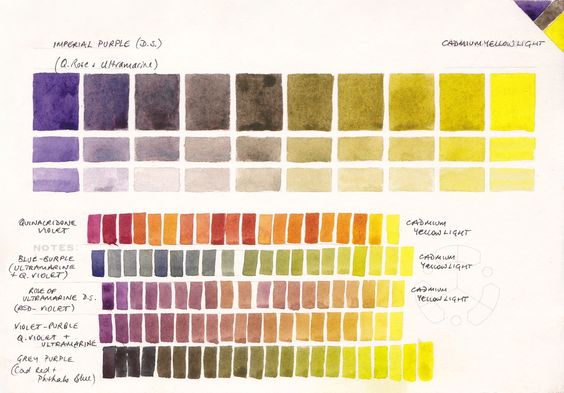 IMPERIAL PURPLE (D.S.)
CADMIUM YELLOW LIGHT
(Q. Rose + Ultramarine)
QUINACRIDONE
VIOLET
CADMIUM
YELLOW LIGHT
NOTES:
BLUE-BURPLE
(ULTRAMARINE
+ Q. VIOLET)
CADMIUM
YELLOW LIGHT
ROSE OF
ULTRAMARINE D.S.
(RED-VIOLET)
CADMIUM
YELLOW LIGHT
VIOLET-PURBLE
Q. VIOLET +
ULTRAMARINE
GREY PURPLE
(Cad Red +
Phthalo Blue)